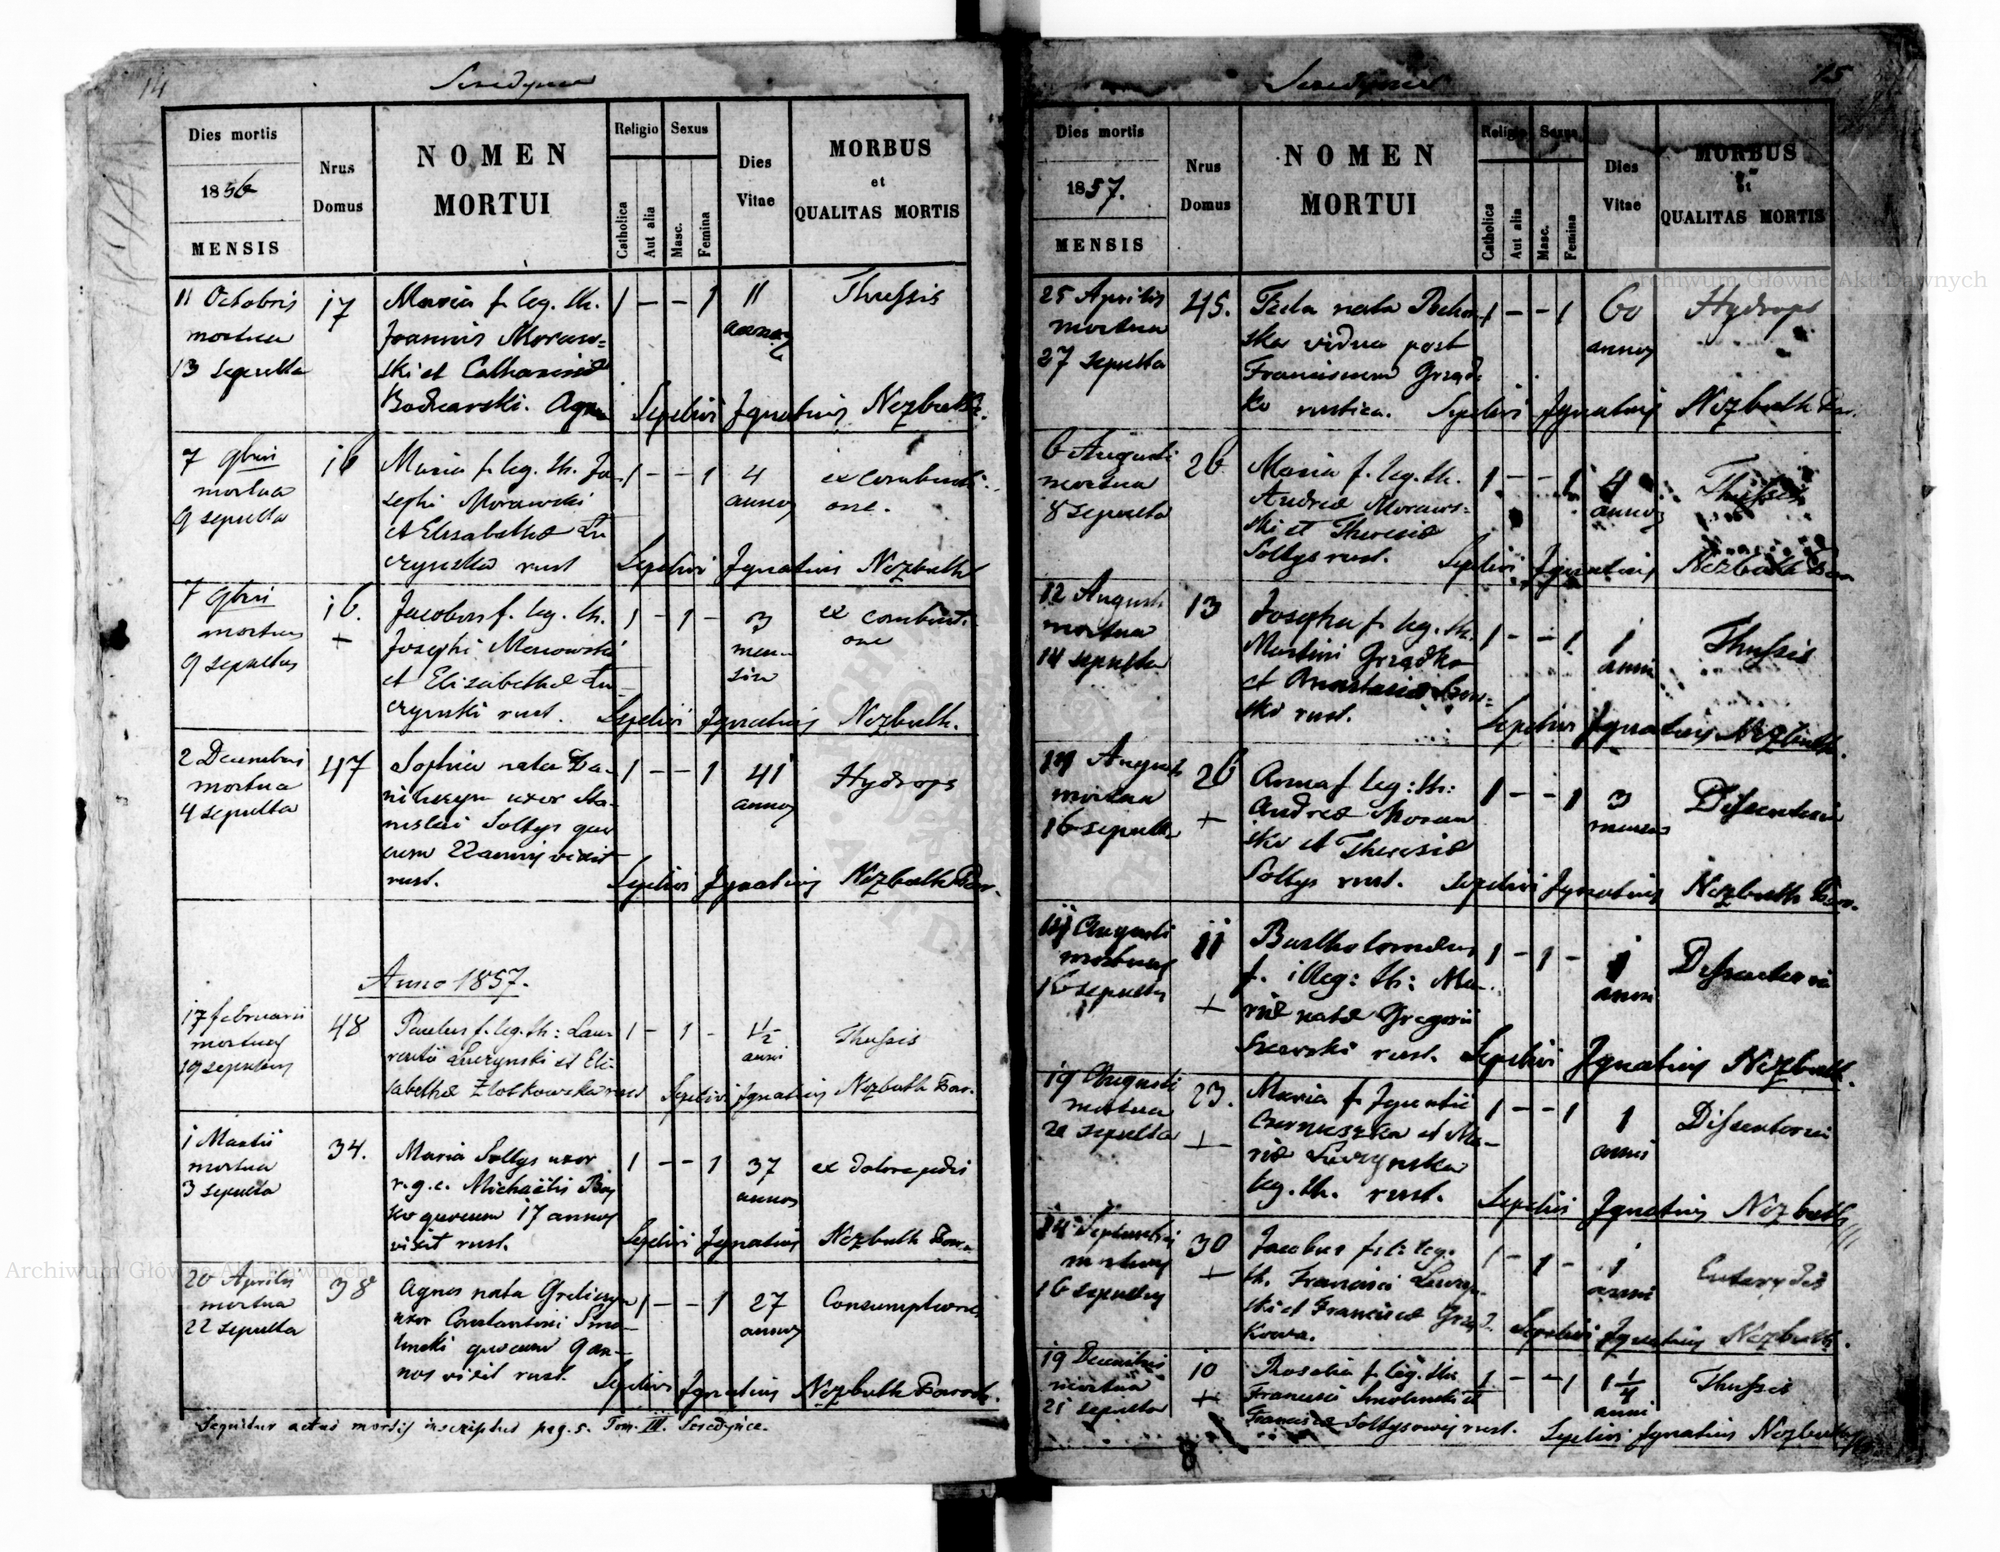 14
Seredynce
Dies mortis
1856
MENSIS
Nrus
Domus
NOMEN
MORTUI
Religio
Catholica
Aut alia
Sexus
Masc.
Femina
Dies
Vitae
MORBUS
et
QUALITAS MORTIS
11 Octobris
mortua
13 sepulta
17
Maria f. leg. th.
Joannis Moraw=
ski et Catharinae
Bodnarski.
1 – – 1
11
annor
Thussis
Sepelivi Ignatius Nezbuth
7 9bris
mortua
9 sepulta
16
Maria f. leg. th. Jo-
sephi Morawski
et Elisabethae Lu
czynska rust
1 – – 1
4
annor
ex combusti-
one.
Sepelivi Ignatius Nezbuth
7 9bris
mortuus
9 sepultus
16.
+
Jacobus f. leg. th.
Josephi Morowski
et Elizabethae Lu
czynski rust.
1 – 1 –
3
men
sium
ex combust.
one
Sepelivi Ignatius Nezbuth.
2 Decembris
mortua
4 sepulta
47
Sophia nata
uxor Sta-
nislai Soltys quo
cum 22 annis vixit
rust.
1 – – 1
41
annor
Hydrops
Sepelivi Ignatius Nezbuth Par.
Anno 1857.
17 februarii
mortuus
19 sepultus
48
Paulus f. leg. th: Lau-
rentii Luczynski et Eli-
sabethae Zlotkowska rust
1 – 1 –
1½
anni
Thussis
Sepelivi Ignatius Nezbuth Par.
1 Martii
mortua
3 sepulta
34.
Maria Soltys uxor
r.g.c. Michaelis
quocum 17 annos
vixit rust.
1 – – 1
37
annos
ex dolore pedis
Sepelivi Ignatius Nezbuth Par.
20 Aprilis
mortua
22 sepulta
38
Agnes nata
uxor Constantini Smo-
linski quocum 9 an-
nos vixit rust.
1 – – 1
27
annor
Consumptione
Sepelivi Ignatius Nezbuth Paroch.
Sequitur actus mortis inscriptus pag. 5. Tom. III. Seredynce.
15
Seredynce
Dies mortis
1857.
MENSIS
Nrus
Domus
NOMEN
MORTUI
Religio
Catholica
Aut alia
Sexus
Masc.
Femina
Dies
Vitae
MORBUS
et
QUALITAS MORTIS
25 Aprilis
mortua
27 sepulta
45.
Tecla nata
vidua post
Franciscum Grząd-
ko rustica.
1 – – 1
60
annor
Hydrops
Sepelivi Ignatius Nezbuth Par.
6 Augusti
mortua
8 sepulta
26
Maria f. leg. th.
Andreae Moraws-
ski et Theresiae
Soltys rust.
1 – – 1
4
annor
Thussis
Sepelivi Ignatius Nezbuth Par
12 Augusti
mortua
14 sepulta
13
Josepha f. leg. th.
Martini Grządko
et Anastasiae
ski rust.
1 – – 1
1
anni
Thussis
Sepelivi Ignatius Nezbuth.
14 Augusti
mortua
16 sepulta
26
+
Anna f leg: th:
Andreae Moraw
ski et Theresiae
Soltys rust.
1 – – 1
3
menses
Dissenteria
Sepelivi Ignatius Nezbuth Par.
Augusti
mortuus
16 sepultus
11
+
Bartholomaeus
f. illeg: th: Ma-
riae natae Gregorii
rust.
1 – 1 –
1
anni
Dissenteria
Sepelivi Ignatius Nezbuth.
19 Augusti
mortua
sepulta
23.
+
Maria f Ignatii
Czernuszka et Ma-
riae Luczynska
leg. th. rust.
1 – – 1
1
anni
Dissenteria
Sepelivi Ignatius Nezbuth
14 Septembris
mortuus
16 sepultus
30
+
Jacobus fil: leg.
th. Francisci Luczyn-
ski et Franciscae
1 – 1 –
1
anni
Sepelivi Ignatius Nezbuth.
19 Decembris
mortua
21 sepulta
10
+
Rosalia f. leg. th.
Francisci Smolinski et
Franciscae Soltysowej rust.
1 – – 1
1¼
anni
Thussis
Sepelivi Ignatius Nezbuth
8
Archiwum Główne Akt Dawnych
Archiwum Główne Akt Dawnych